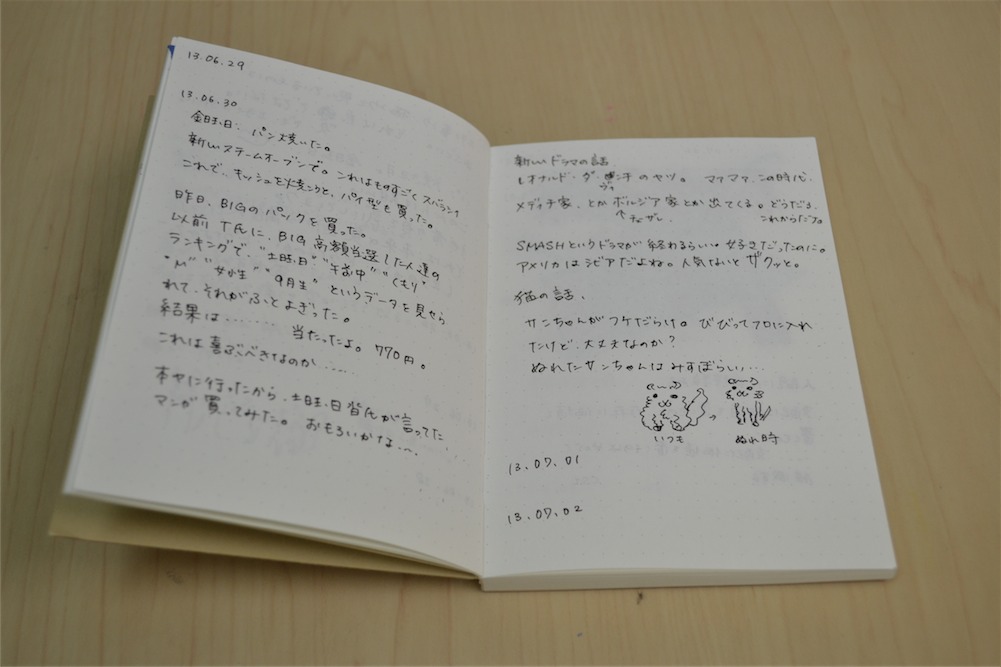 13.06.29
13.06.30
金曜日、パン焼いた。
新しいスチームオーブンで。これはものすごくスバラシイ
これで、キッシュを焼こうと、パイ型も買った。
昨日、BIGのパックを買った。
以前 T氏に、BIG 高額当選した人達の
ランキングで、"土曜日" "午前中" "くもり"
"M" "女性" "9月生" というデータを見せら
れて、それがふとよぎった。
結果は……… 当たったよ。770円。
これは喜ぶべきなのか……
本ヤに行ったから、土曜日皆んが言ってた
マンガ買ってみた。 おもろいかな…
新しいドラマの話
レオナルド・ダ・ のヤツ。 マアマア、この時代、
ヴィ
メディチ家、とかボルジア家とか出てくる。どうだろ、
これからだな。
SMASHというドラマが終わるらしい。好きだったのに。
アメリカはシビアだよね。人気ないとザクッと。
猫の話、
サンちゃんがフケだらけ。びびってフロに入れ
たけど、大丈夫なのか?
ぬれたサンちゃんはみすぼらしい…
いつも
ぬれ時
13.07.01
13.07.02